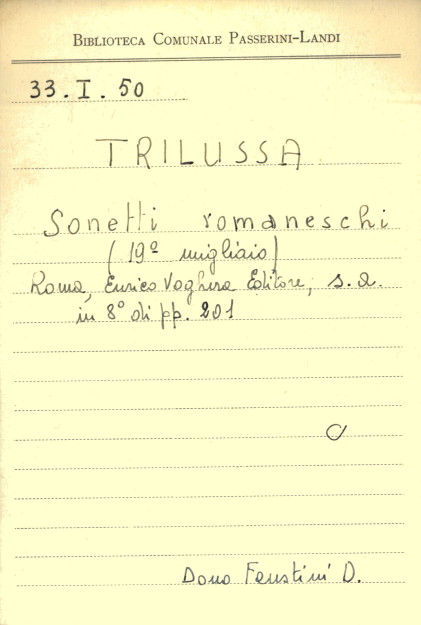 BIBLIOTECA COMUNALE PASSERINI-LANDI
33.I.50
TRILUSSA
Sonetti romaneschi
(19º migliaio)
Roma, Enrico Voghera Editore, s.a.
in 8º di pp. 201
Dono Faustini D.